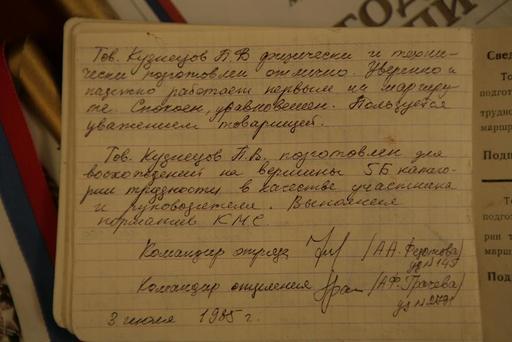 Тов. Кузнецов П.В физически и техни-
чески подготовлен отлично. Уверенно и
надежно работает первым на маршру-
те. Спокоен, уравновешен. Пользуется
уважением товарищей.
Тов. Кузнецов П.В. подготовлен для
восхождений на вершины 5Б катего-
рии трудности в качестве участника
и руководителя. Выполнил
норматив КМС.
Командир отряда (А.А. Федотова)
уд №
Командир отделения (А.Ф. Грачева)
уд №
3 июля 1985 г.
Свед
То
подгот
трудно
маршр
Подп
То
подгот
рии т
маршр
Под